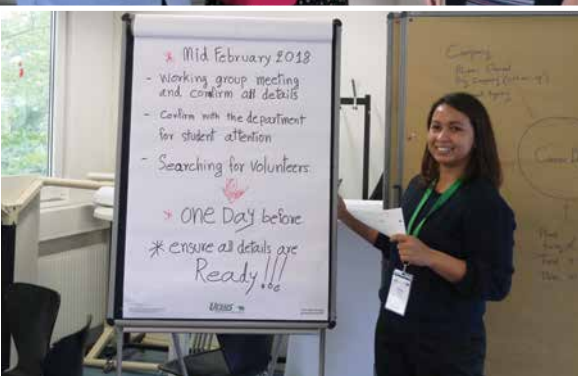 * Mid February 2018
- Working group meeting
and confirm all details
- Confirm with the department
for student attention
- Searching for Volunteers
* ONE Day before
* ensure all details are
Ready!!!
Company